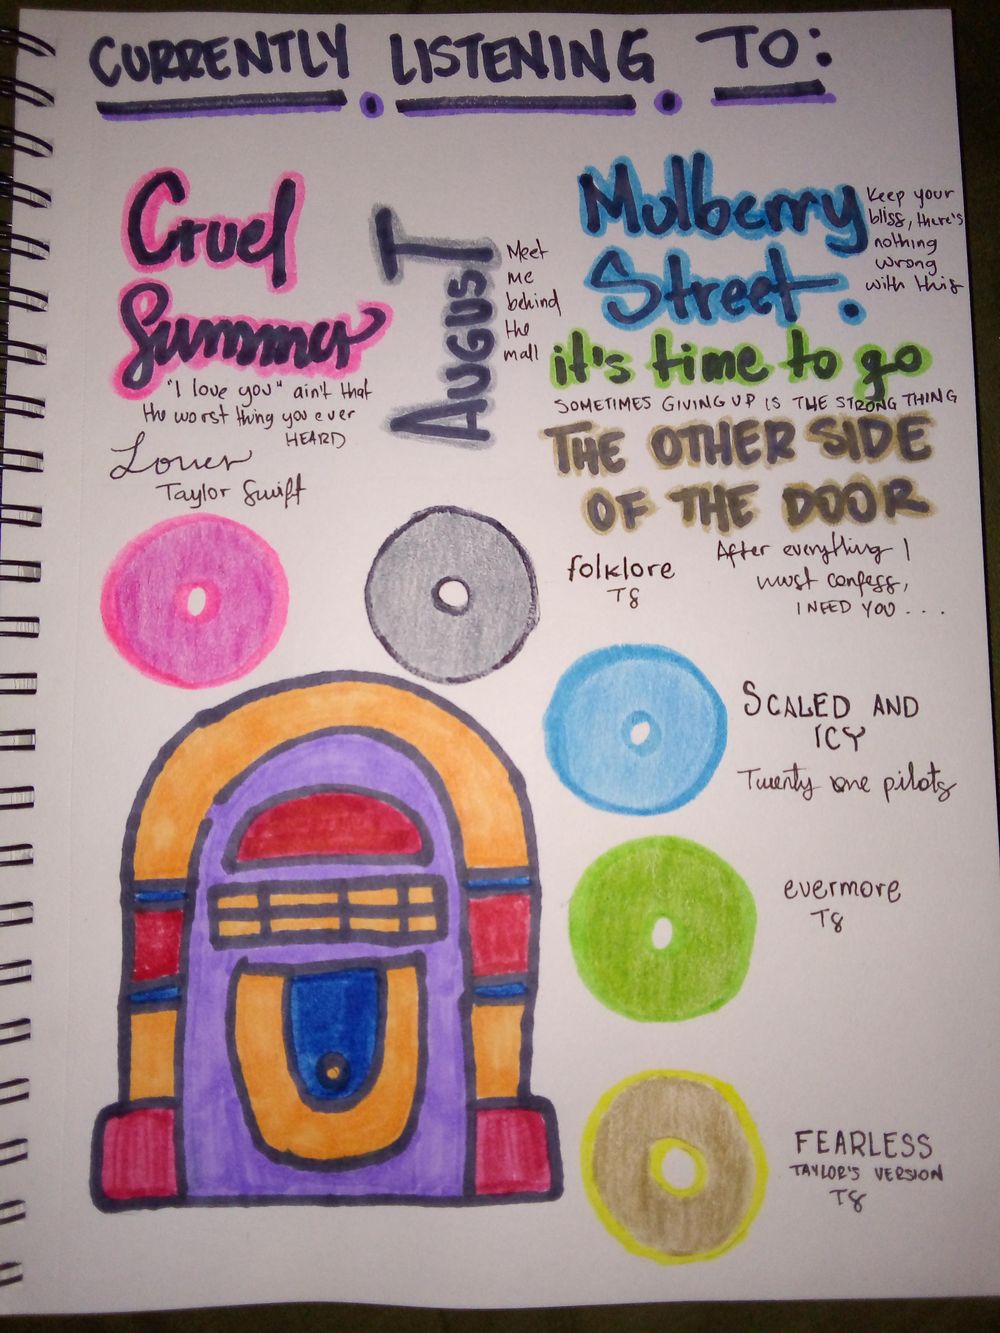 CURRENTLY . LISTENING . TO:
Cruel
Summer
"I love you" ain't that
the worst thing you ever
HEARD
Lover
Taylor Swift
AUGUST
Meet
me
behind
the
mall
folklore
T8
Mulberry
Street.
Keep your
bliss, there's
nothing
wrong
with this
it's time to go
SOMETIMES GIVING UP IS THE STRONG THING
THE OTHER SIDE
OF THE DOOR
After everything I
must confess,
I NEED YOU ....
SCALED AND
ICY
Twenty one pilots
evermore
T8
FEARLESS
TAYLOR'S VERSION
T8